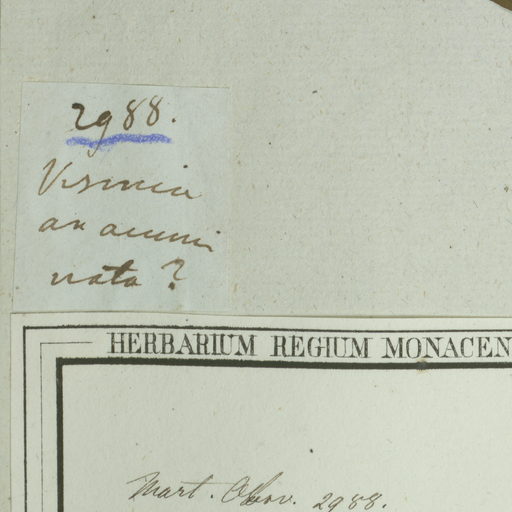 2988.
Vismia
an acumi
nata?
HERBARIUM REGIUM MONACEN
Mart. Obsv. 2988.